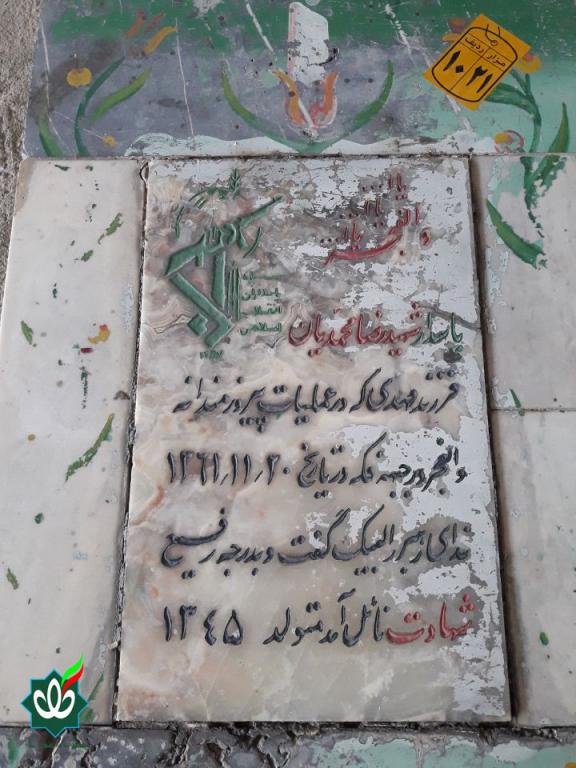 مزار ردیف
۱۰ ۲۱
سپاه
پاسداران
انقلاب
اسلامی
پاسدار شهید رضا محمدیان
فرزند مهدی که در عملیات پیروزمندانه
والفجر در جبهه فکه در تاریخ ۲۰-۱۱-۱۳۶۱
ندای رهبر را لبیک گفت و بدرجه رفیع
شهادت نائل آمد متولد ۱۳۴۵